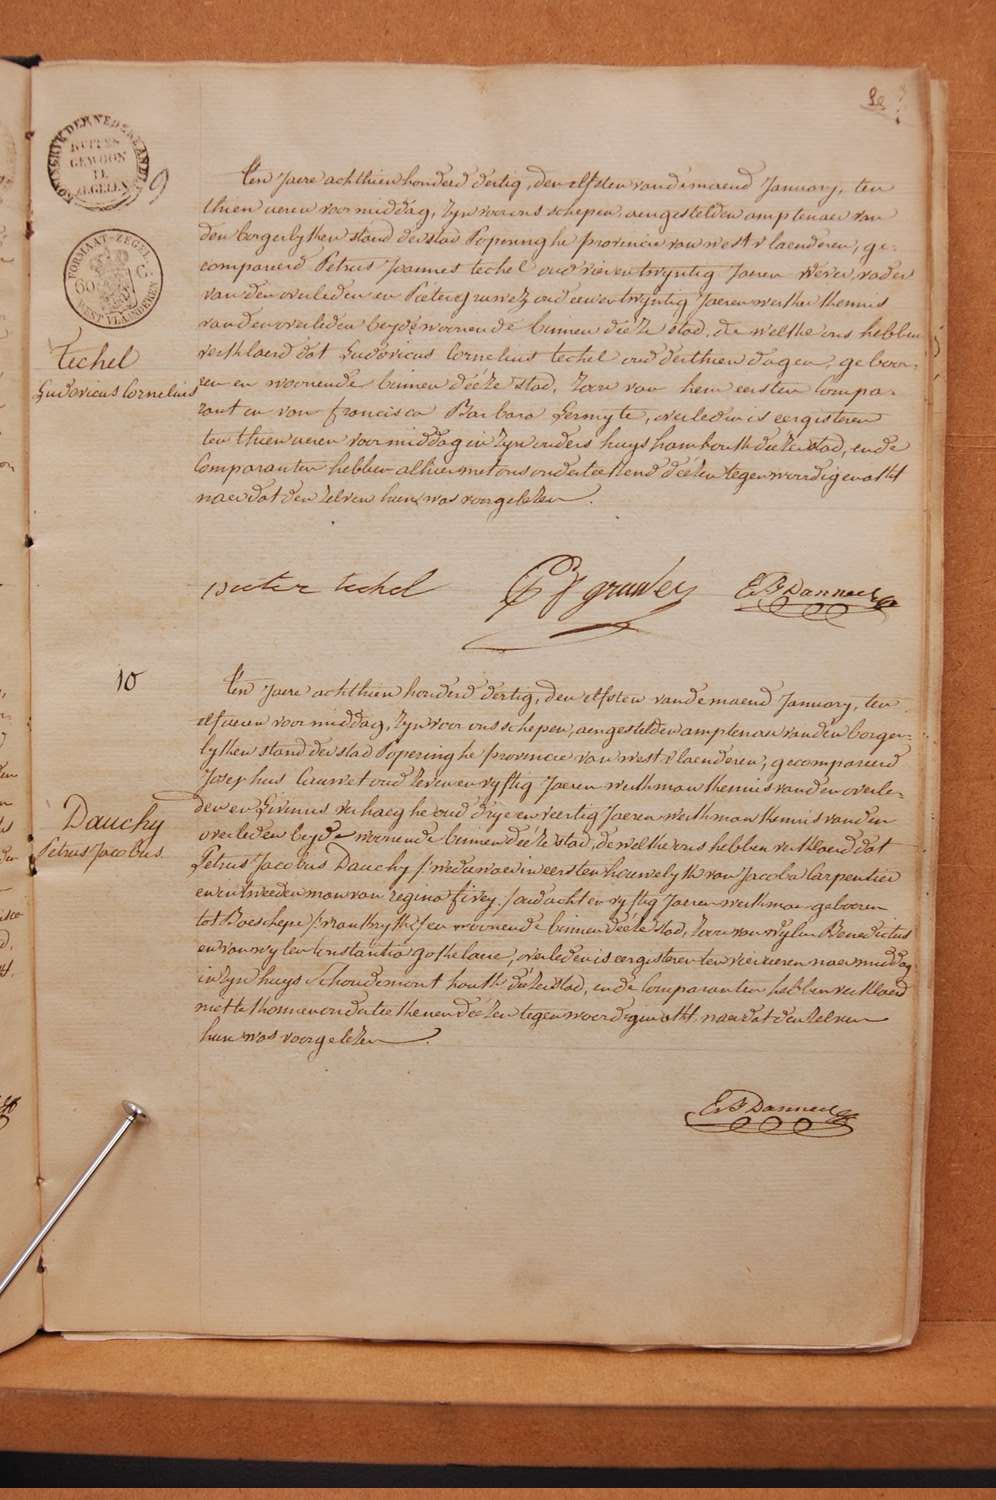 KONINGRIK DER NEDERLANDEN
BUITEN
GEWOON
TE
ZEGELEN
9
FORMAAT-ZEGEL.
60 C
WEST VLAANDEREN
techel
Ludovicus Cornelius
Ten Jaere achthien honderd dertig, den elfsten van de maend January, ten
thien ueren voormiddag, zyn voor ons schepen aengestelden amptenaer van
den borgerlyken stand der stad Poperinghe provincie van westvlaenderen, ge-
compareerd Petrus Joannes techel oud vier en twyntig Jaeren wever, vader
van den overleden en Pieter gruwez oud een en twyntig Jaeren werkman kennis
van den overleden beyde woonende binnen deéze stad, de welke ons hebben
verklaerd dat Ludovicus Cornelius techel oud derthien dagen, geboo-
ren en woonende binnen deéze stad, zoon van hem eersten Compa-
rant en van francisca Barbara Lermyte, overleden is eergisteren
ten thien ueren voormiddag in zyn ouders huys hambouth deéze stad, en de
Comparanten hebben alhier met ons onderteekend deézen tegenwoordigen akt
naer dat den zelven hun was voorgelezen.
pieter techel
gruwez
E F Dannoeel
10
Dauchy
Petrus Jacobus
Ten Jaere achthien honderd dertig, den elfsten van de maend January, ten
elf ueren voormiddag, zyn voor ons schepen, aengestelden amptenaer van den borger-
lyken stand der stad Poperinghe provincie van westvlaenderen, gecompareerd
Josephus Cauwet oud zeven en vyftig Jaeren werkman kennis van den overle-
den en Livinus verhaeghe oud drye en veertig Jaeren werkman kennis van den
overleden beyde woonende binnen deéze stad, de welke ons hebben verklaerd dat
Petrus Jacobus Dauchy /: weduwaer in eersten houwelyk van Jacoba Carpentier
en en tweeden man van regina firey :/ oud acht en vyftig Jaeren werkman gebooren
tot Boeschepe /: vrankryk :/ en woonende binnen deéze stad, zoon van wylen Benedictus
en van wylen Constantia gokelaere, overleden is eergisteren ten vier ueren naermiddag
in zyn huys Schoudemont houk deéze stad, en de Comparanten hebben verklaerd
niet te konnen onderteekenen deézen tegenwoordigen akt, naer dat den zelven
hun was voorgelezen.
E F Dannoeel